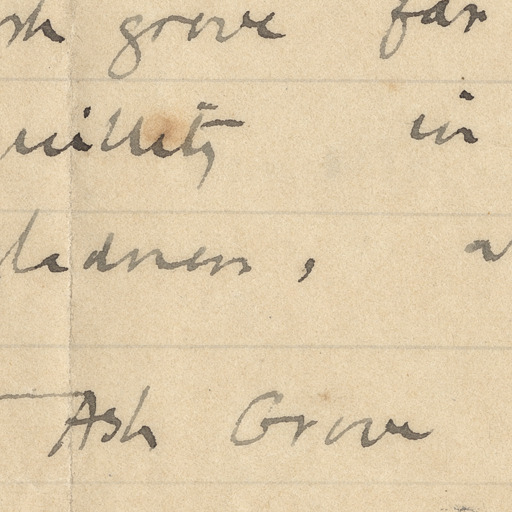 sh grove far
uillity in
ladness, a
Ash Grove